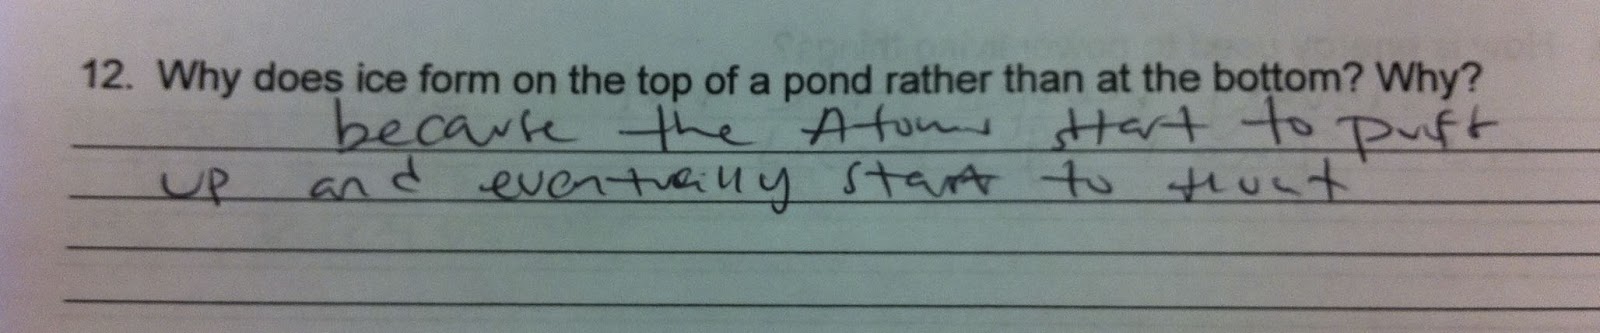 12. Why does ice form on the top of a pond rather than at the bottom? Why?
because the Atoms start to puft
up and eventually start to float